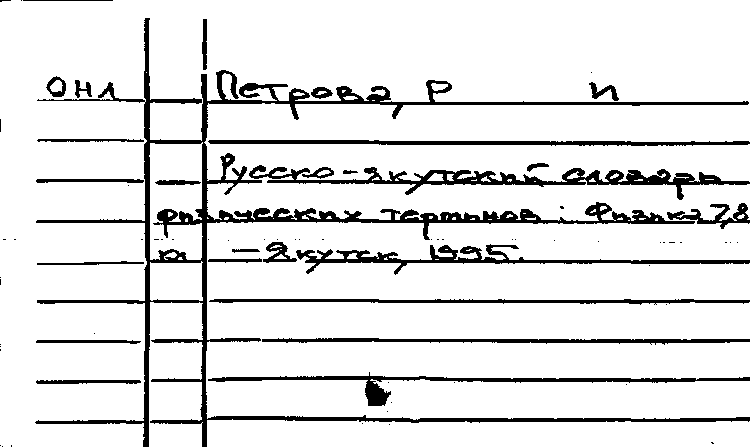 ОНЛ Петрова, Р И
Русско-якутский словарь
физических терминов: Физика 7,8
кл — Якутск, 1995.